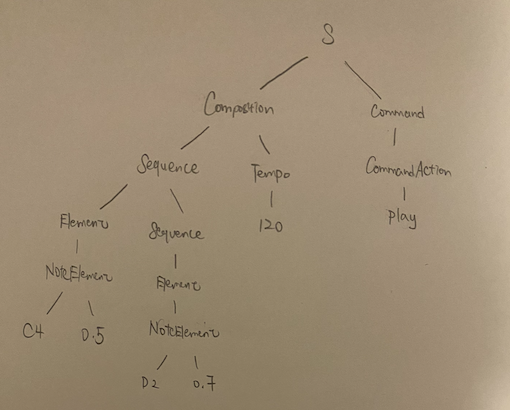 S
Composition Command
Sequence Tempo CommandAction
Element Sequence 120 play
NoteElement Element
C4 0.5 NoteElement
D2 0.7